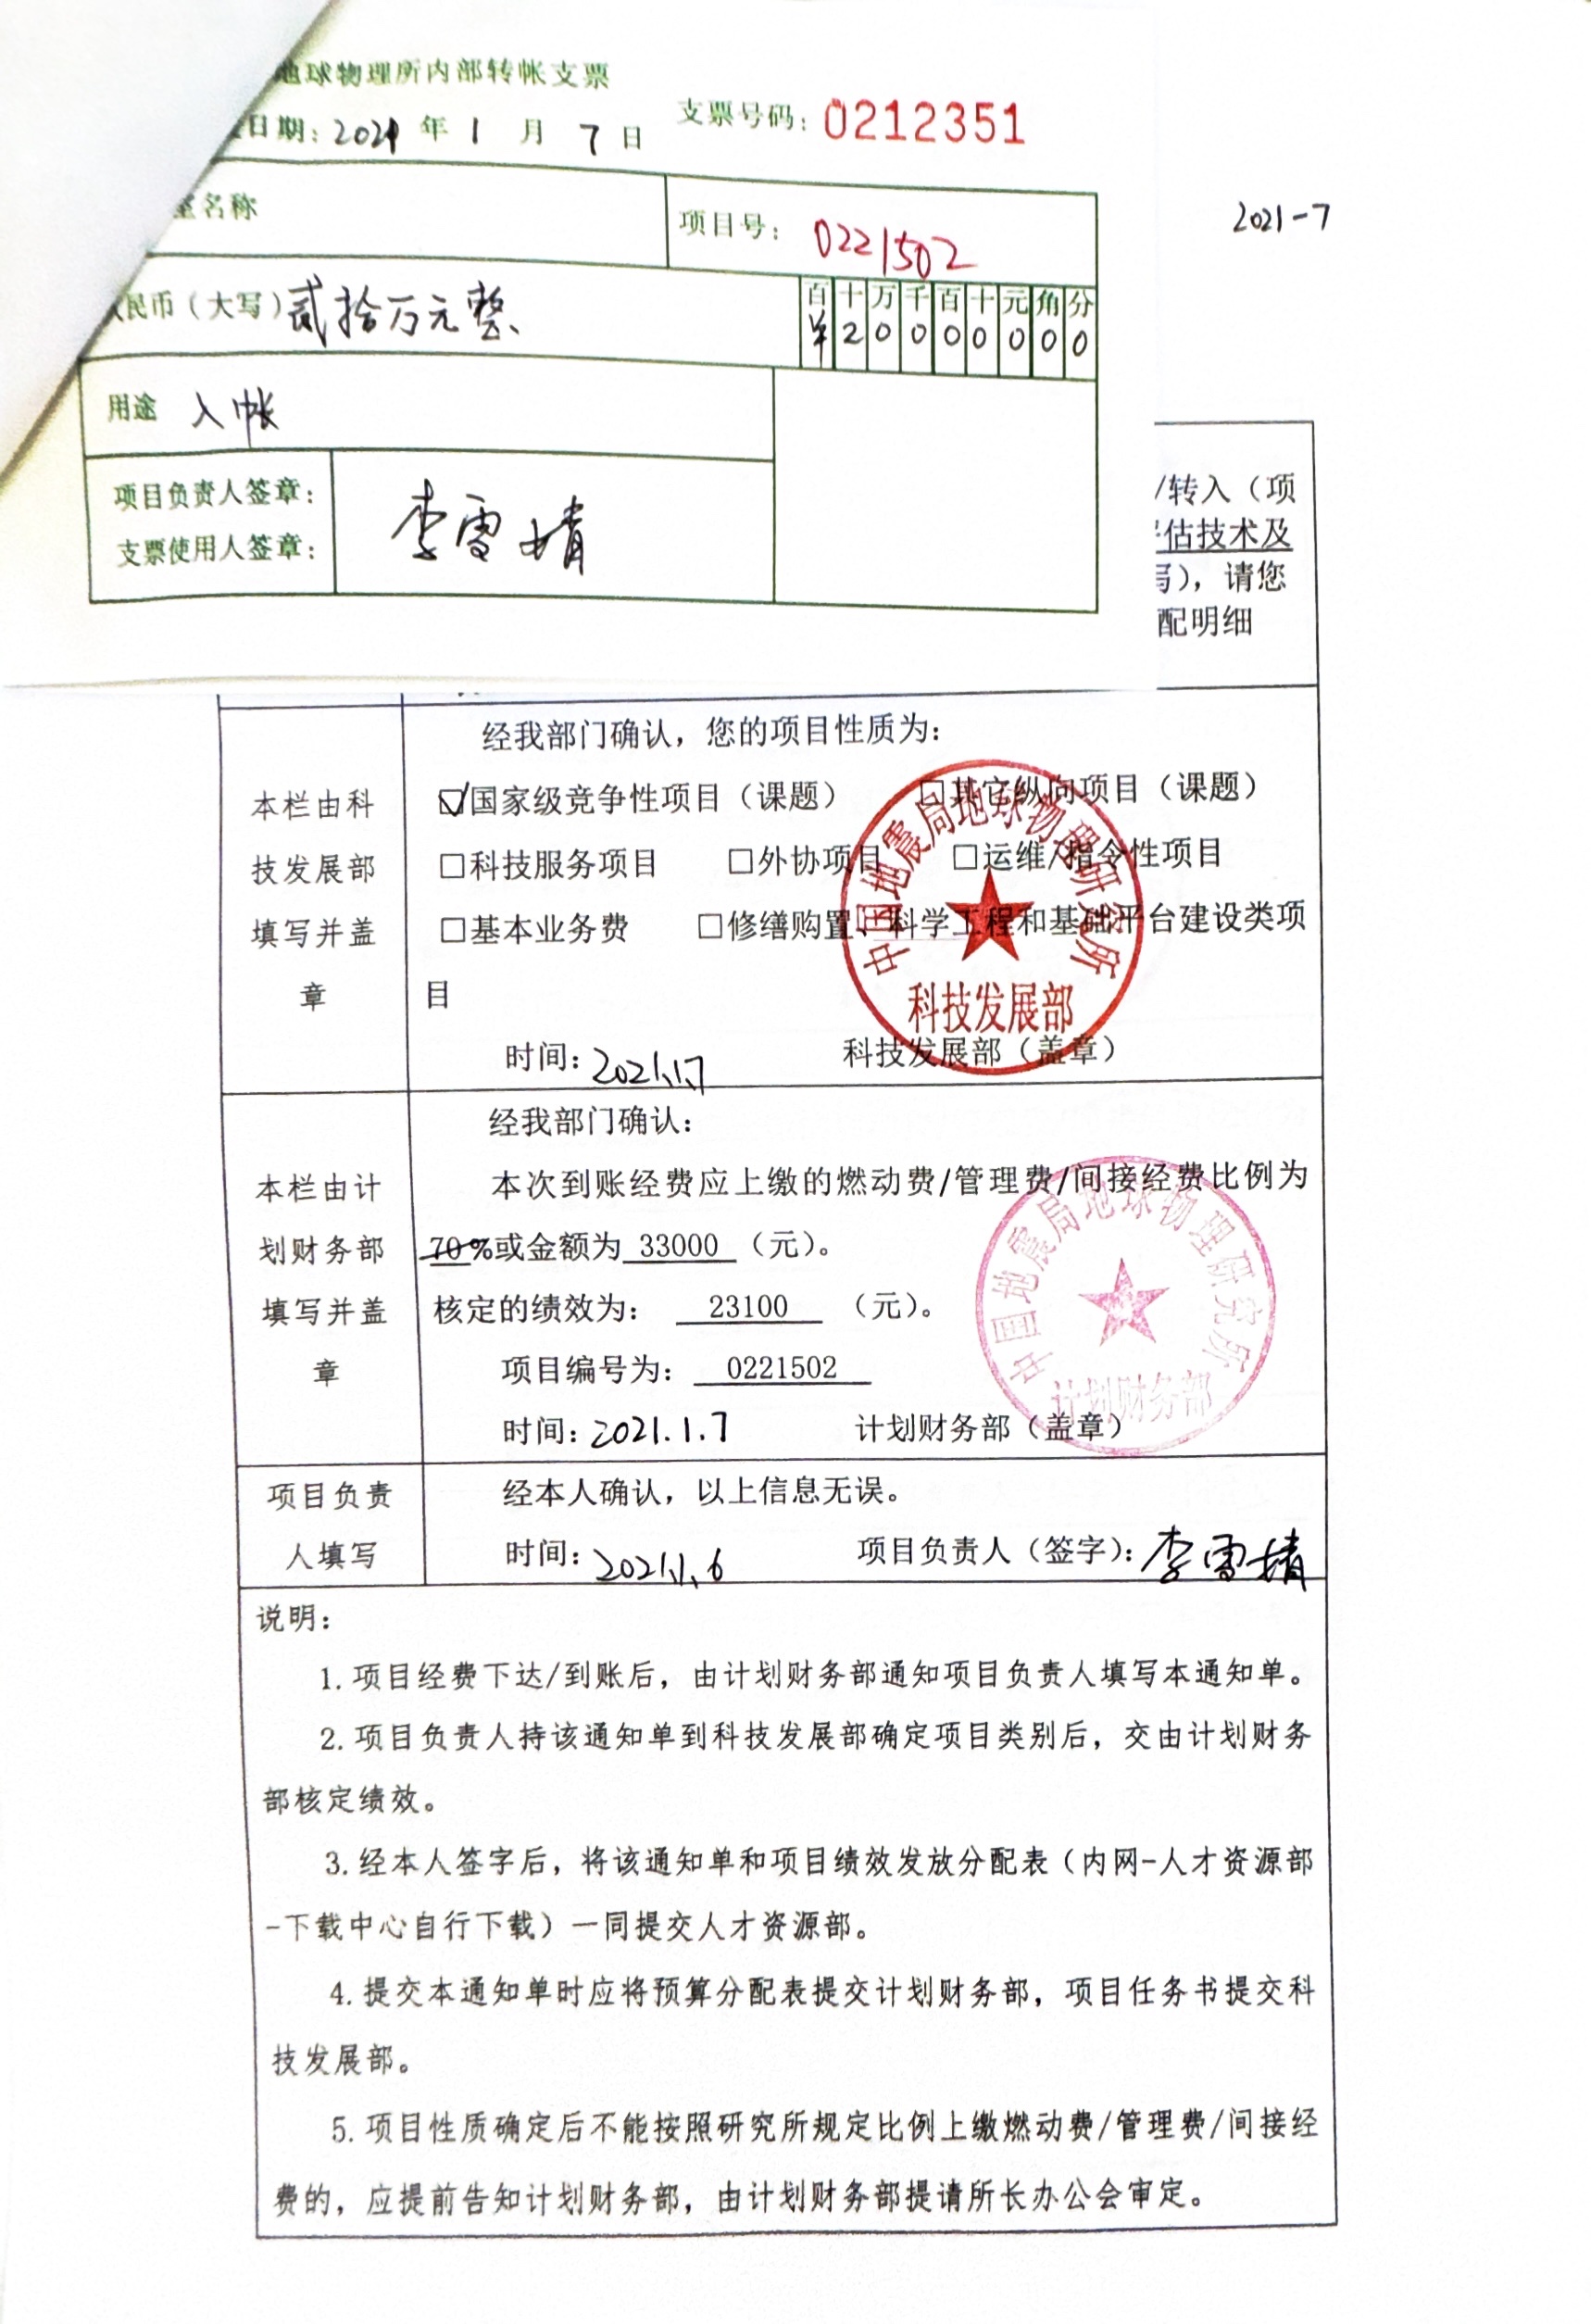 地球物理所内部转帐支票
日期：2021年1月7日
支票号码：0212351
2021-7
室名称
项目号：0221502
民币（大写）贰拾万元整
百十万千百十元角分
¥20000000
用途 入帐
项目负责人签章：
支票使用人签章：
李雪婧
/转入（项
估技术及
写），请您
配明细
本栏由科
技发展部
填写并盖
章
经我部门确认，您的项目性质为：
☑国家级竞争性项目（课题） □其它纵向项目（课题）
□科技服务项目 □外协项目 □运维/指令性项目
□基本业务费 □修缮购置、科学工程和基础平台建设类项
目
时间：2021.1.7 科技发展部（盖章）
中国地震局地球物理研究所
科技发展部
本栏由计
划财务部
填写并盖
章
经我部门确认：
本次到账经费应上缴的燃动费/管理费/间接经费比例为
70%或金额为 33000 （元）。
核定的绩效为： 23100 （元）。
项目编号为： 0221502
时间：2021.1.7 计划财务部（盖章）
中国地震局地球物理研究所
计划财务部
项目负责
人填写
经本人确认，以上信息无误。
时间：2021.1.6 项目负责人（签字）：李雪婧
说明：
1.项目经费下达/到账后，由计划财务部通知项目负责人填写本通知单。
2.项目负责人持该通知单到科技发展部确定项目类别后，交由计划财务
部核定绩效。
3.经本人签字后，将该通知单和项目绩效发放分配表（内网-人才资源部
-下载中心自行下载）一同提交人才资源部。
4.提交本通知单时应将预算分配表提交计划财务部，项目任务书提交科
技发展部。
5.项目性质确定后不能按照研究所规定比例上缴燃动费/管理费/间接经
费的，应提前告知计划财务部，由计划财务部提请所长办公会审定。